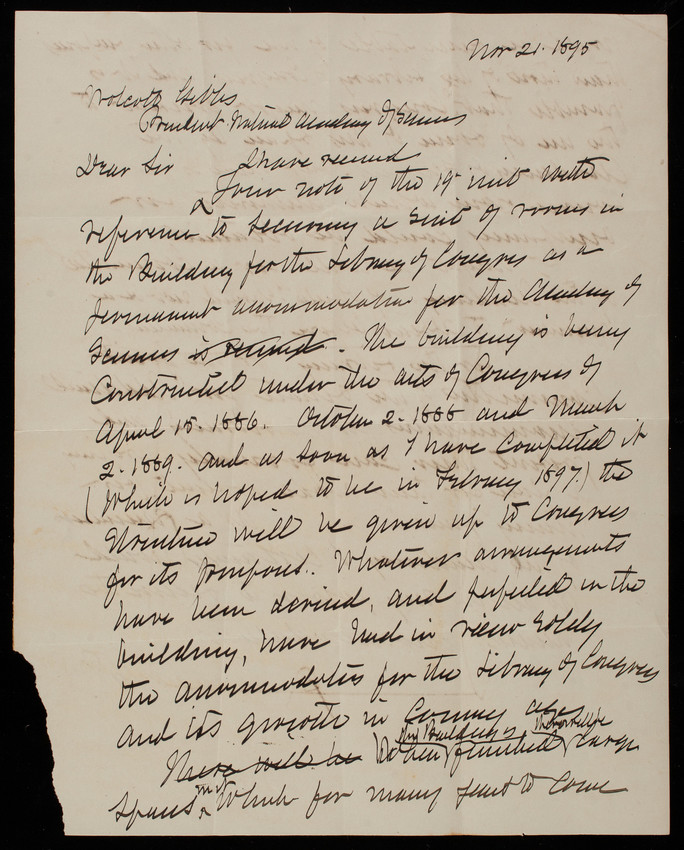 Nov 21. 1895
Wolcott Gibbs
President National Academy of Sciences
Dear Sir I have received
Your note of the 19th inst with
reference to securing a suit of rooms in
the Building for the Library of Congress as a
permanent accommodation for the Academy of
Sciences is received. The building is being
Constructed under the acts of Congress of
April 15. 1886. October 2. 1888 and March
2. 1889. and as soon as I have completed it
(Which is hoped to be in February 1897.) the
Structure will be given up to Congress
for its purposes. Whatever arrangements
have been devised, and perfected in the
building, have had in view solely
the accommodation for the Library of Congress
and its growth in coming ages
the Building is there will be
There will be When finished large
Spaces in it Which for many years to come